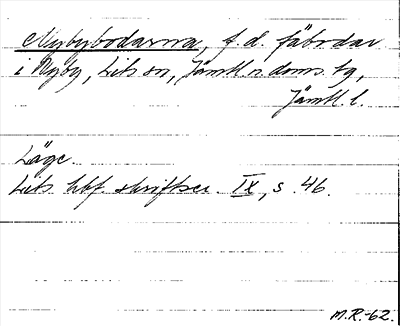 Nybybodarna, f.d. fäbodar
i Nyby, Lits sn, Jämtl. n. doms. tg,
Jämtl. l.
Läge.
Lits hbf. skriftser. IX, s. 46.
M.R.-62.